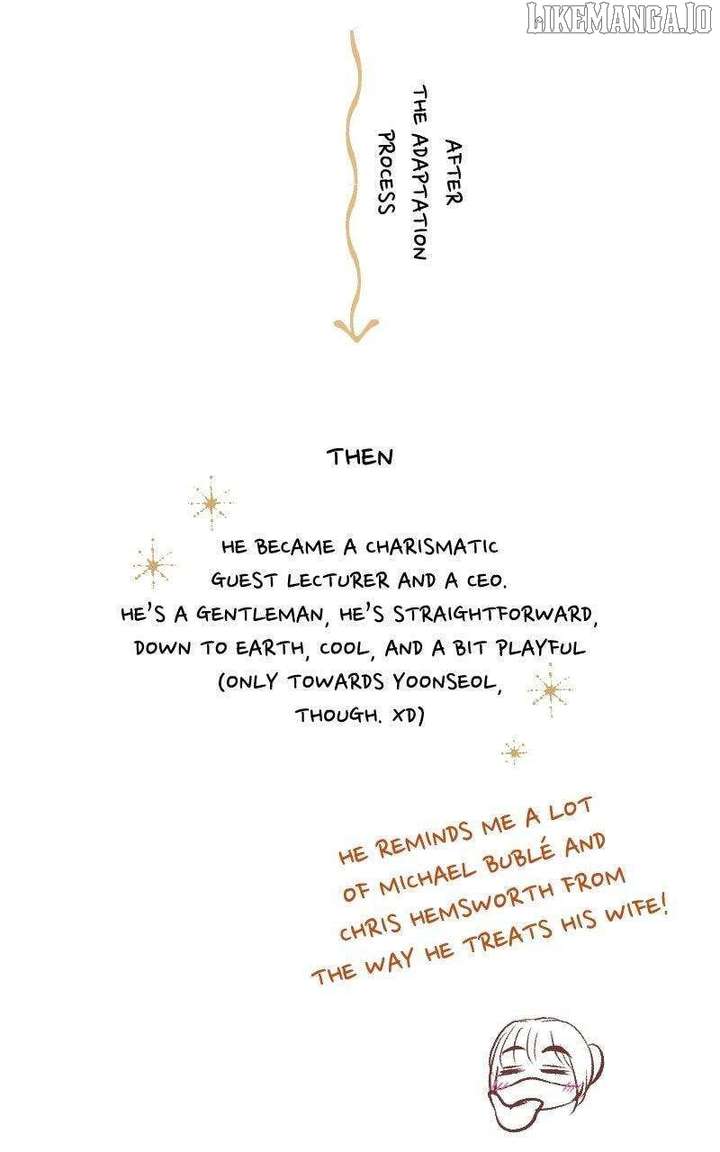 LIKEMANGA.IO
AFTER
THE ADAPTATION
PROCESS
THEN
HE BECAME A CHARISMATIC
GUEST LECTURER AND A CEO.
HE'S A GENTLEMAN, HE'S STRAIGHTFORWARD,
DOWN TO EARTH, COOL, AND A BIT PLAYFUL
(ONLY TOWARDS YOONSEOL,
THOUGH. XD)
HE REMINDS ME A LOT
OF MICHAEL BUBLÉ AND
CHRIS HEMSWORTH FROM
THE WAY HE TREATS HIS WIFE!